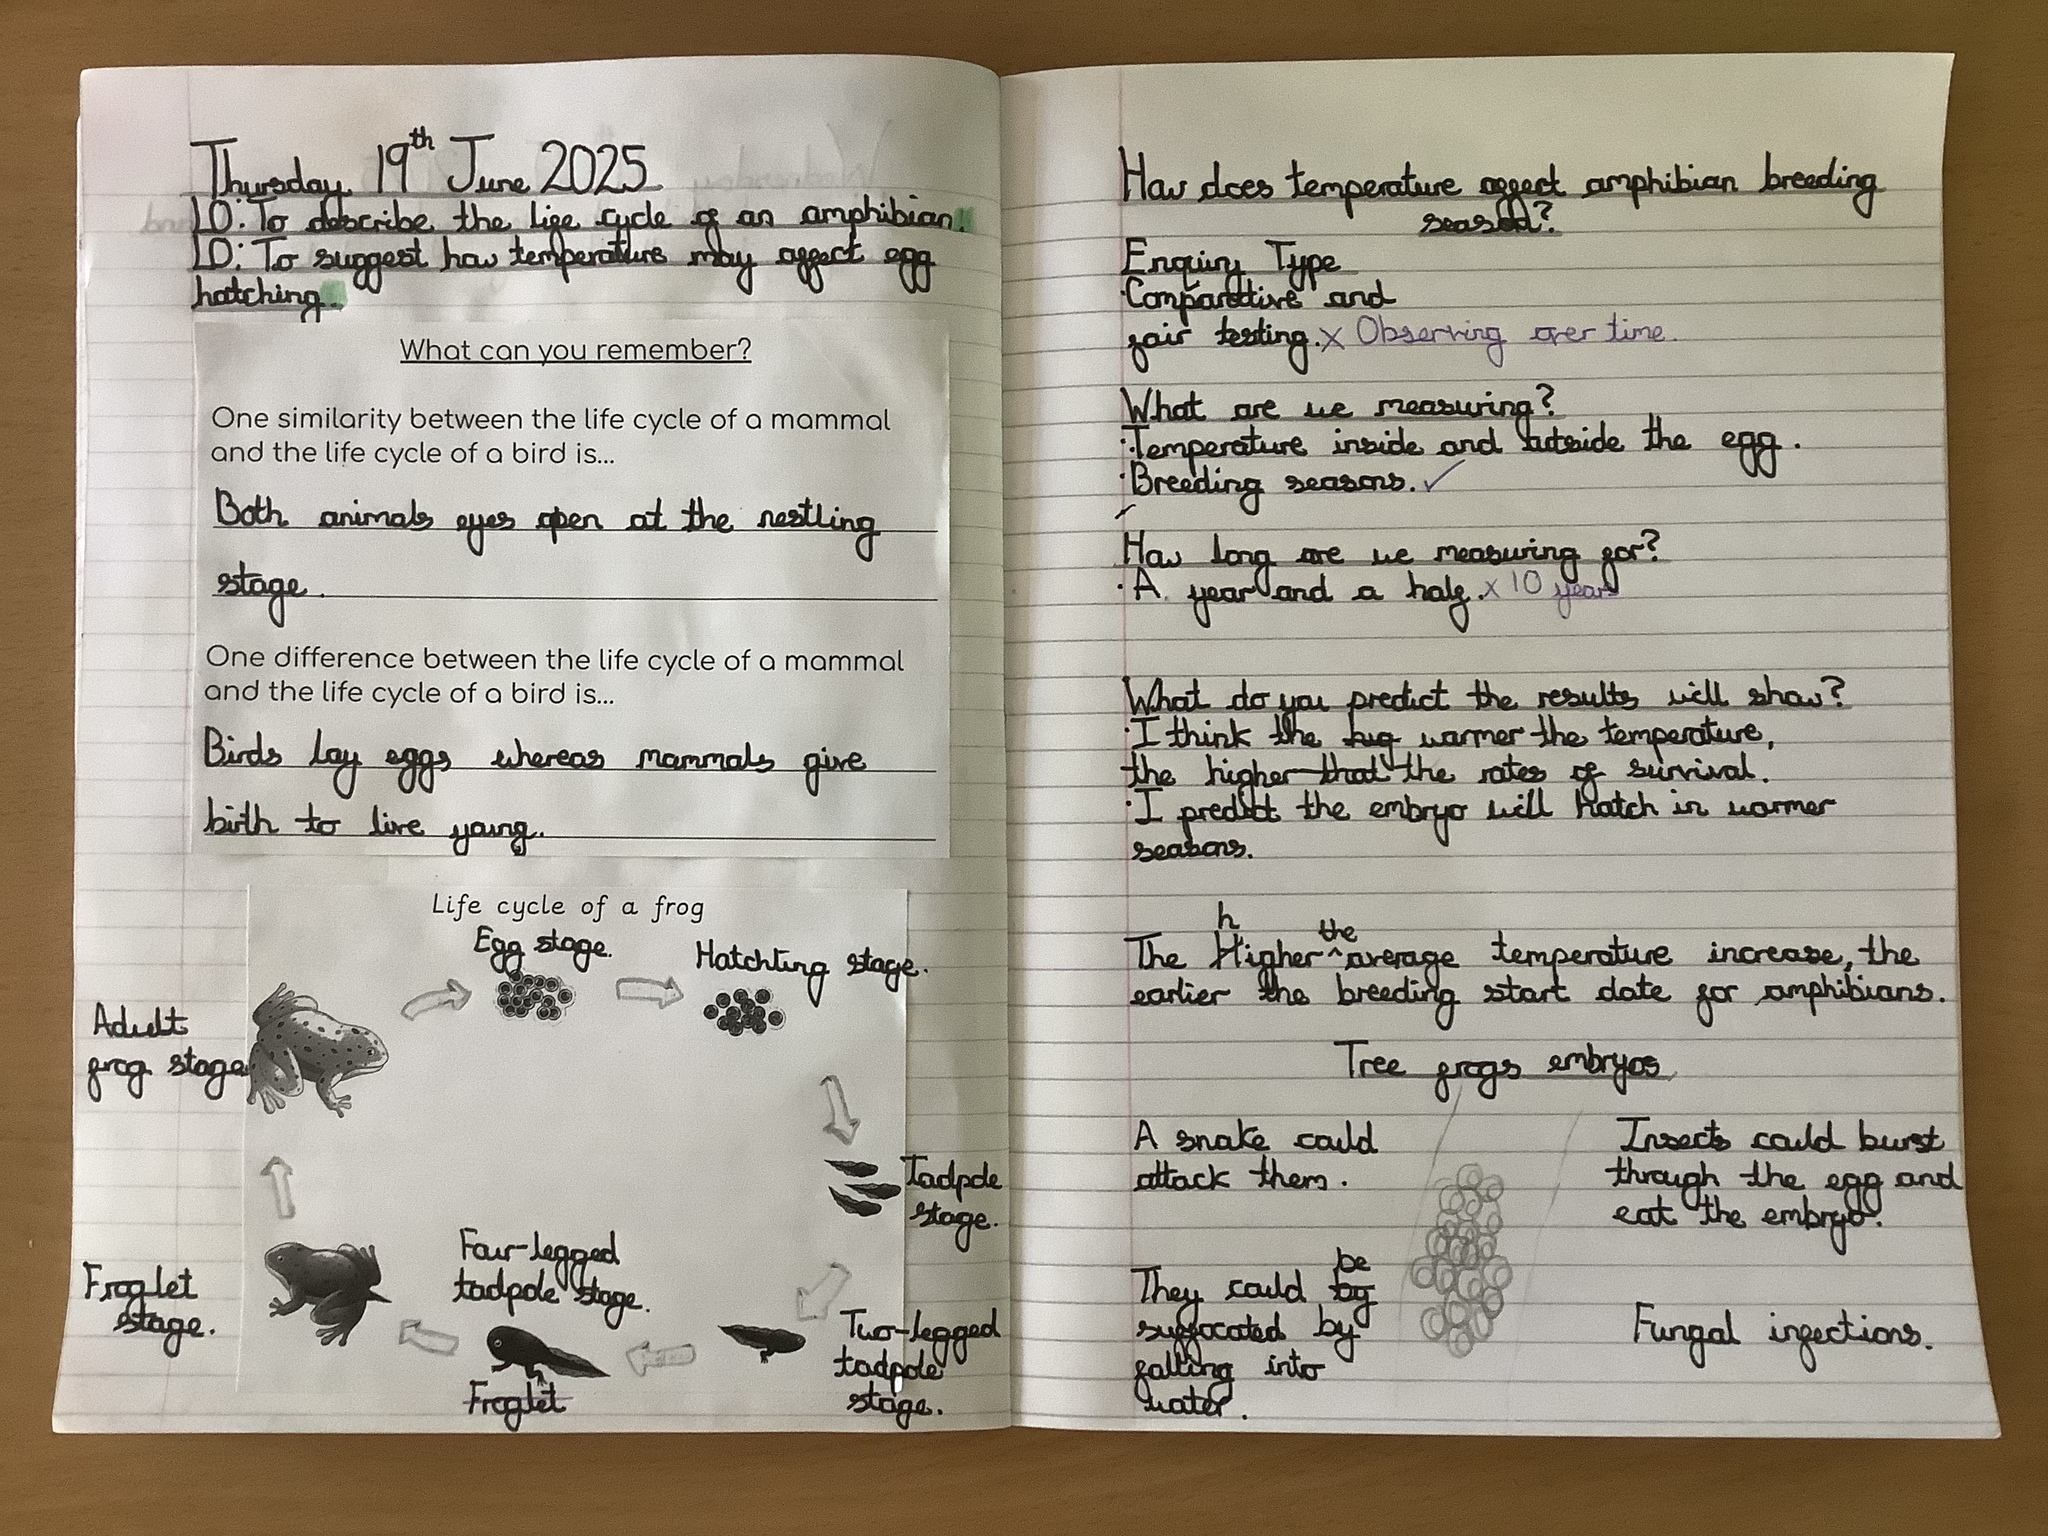 Thursday 19th June 2025
LO: To describe the life cycle of an amphibian.
LO: To suggest how temperature may affect egg
hatching.
What can you remember?
One similarity between the life cycle of a mammal
and the life cycle of a bird is...
Both animals eyes open at the nestling
stage.
One difference between the life cycle of a mammal
and the life cycle of a bird is...
Birds lay eggs whereas mammals give
birth to live young.
Life cycle of a frog
Egg stage.
Hatchting stage.
Adult
frog stage
Tadpole
stage.
Four-legged
tadpole stage.
Froglet
stage.
Two-legged
tadpole
stage.
Froglet
How does temperature affect amphibian breeding
season?
Enquiry Type
·Comparative and
fair testing. x Observing over time.
What are we measuring?
·Temperature inside and outside the egg.
·Breeding seasons. ✓
How long are we measuring for?
·A year and a half. x 10 years
What do you predict the results will show?
·I think the hug warmer the temperature,
the higher that the rates of survival.
·I predict the embryo will hatch in warmer
seasons.
h the
The Higher ^ average temperature increase, the
earlier the breeding start date for amphibians.
Tree frogs embryos
A snake could
attack them.
Insects could burst
through the egg and
eat the embryo.
be
They could
suffocated by
falling into
water.
Fungal infections.